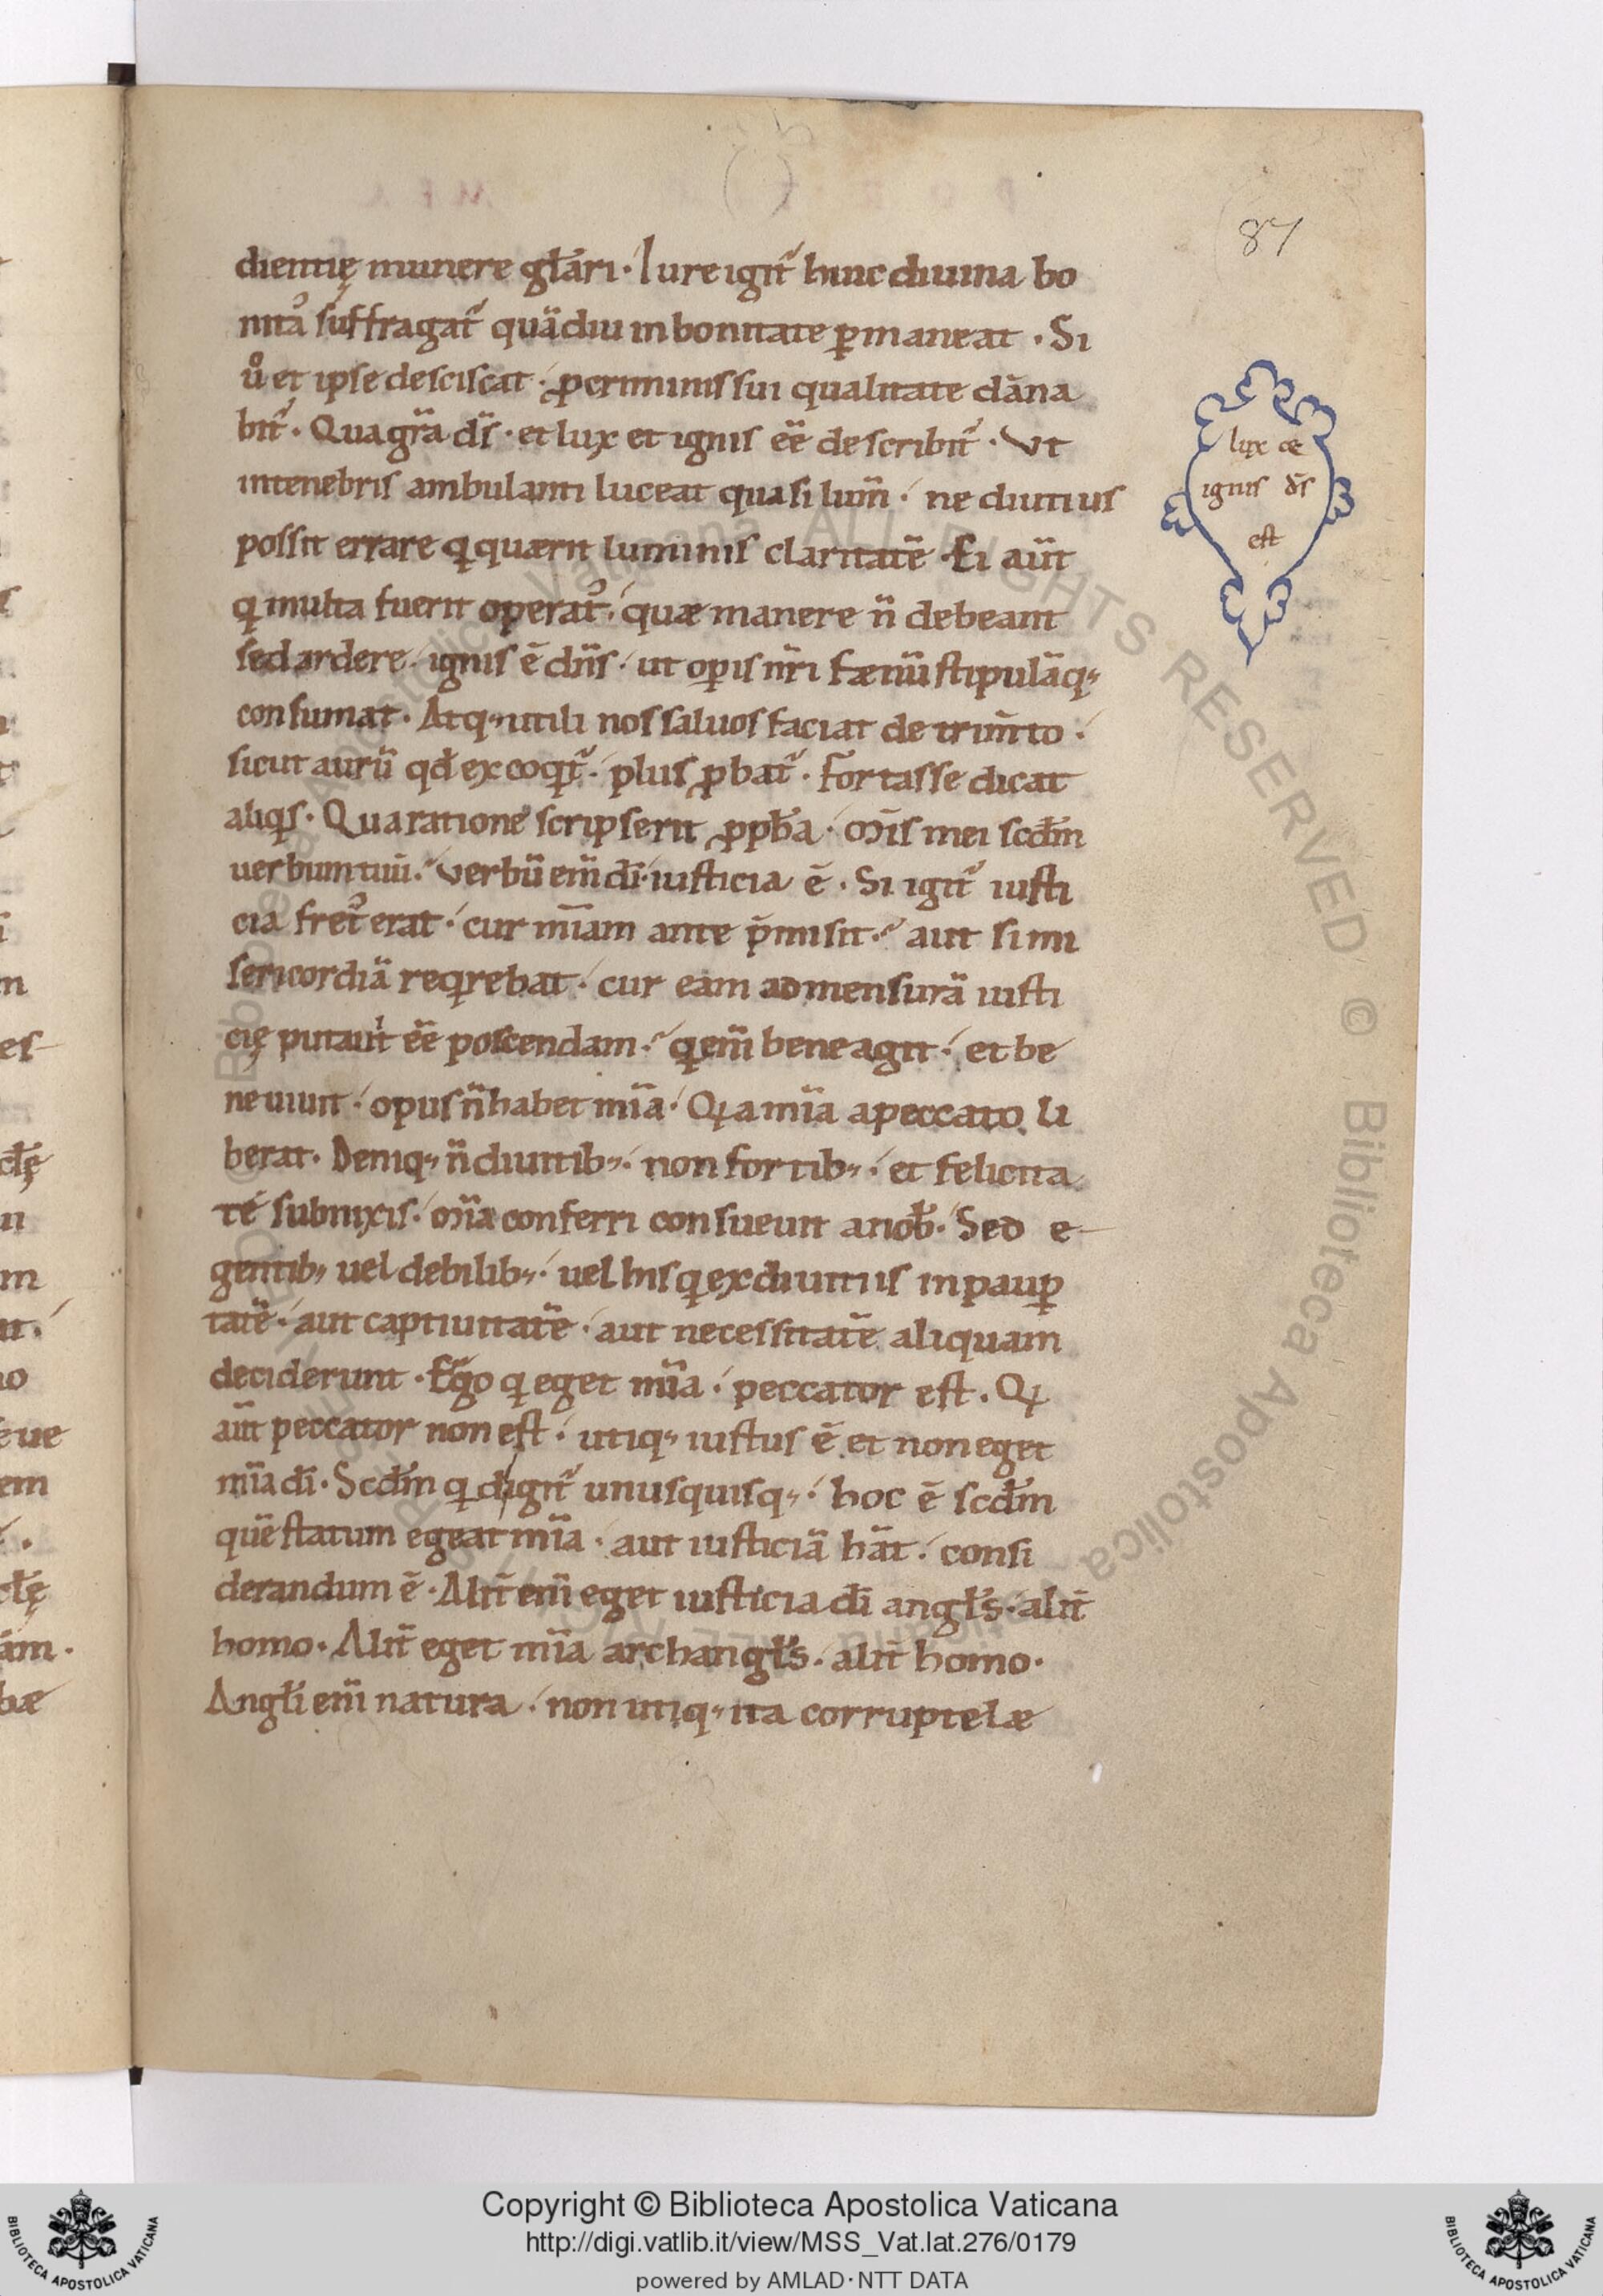 87
dientię munere gl̄ari · Iure igit᷑ hinc diuina bo
nita᷒ suffragat᷑ quādiu in bonitate p̱maneat · Si
ůet ipse desciscat · ꝓ criminis sui qualitate dāna
bit᷑ · Qua gr̄a ds̄ · et lux et ignis ēe describit᷑ · Vt
in tenebris ambulanti luceat quasi lum̄ · ne diutius
possit errare q̱ quærit luminis claritatē · Ei aūt
q̱ multa fuerit operat᷒ · quæ manere n̄ debeant
sed ardere · ignis ē dn̄s · ut op̱is nr̄i fænū stipulāq;
consumat · Atq; utili nos saluos faciat detrim̄to ·
sicut aurū qd̄ excoq̱t᷑ · plus ꝓbat᷑ · Fortasse dicat
aliq̱s · Qua ratione scripserit ꝓph̄a · Mis̄ mei scd̄m
uerbum tuū · Verbū em̄ dī · iusticia ē · Si igit᷑ iusti
cia fret᷒ erat · cur mīam ante p̄misit · aut si mi
sericordiā req̱rebat · cur eam ad mensurā iusti
cię putauit ēe poscendam · q̱ em̄ bene agit · et be
ne uiuit · opus n̄ habet mīa · Q̱a mīa a peccato li
berat · Deniq; n̄ diuitib; · non fortib; · et felicita
te subnixis · mīa conferri consueuit a nob̄ · Sed e-
gentib; uel debilib; · uel his q̱ ex diuitiis in paup̱
tatē · aut captiuitatē · aut necessitatē aliquam
deciderunt · Eg̊o q̱ eget mīa · peccator est · Q̱
aūt peccator non est · utiq; iustus ē et non eget
mīa dī · Scd̄m q̱d igit᷑ unusquisq; · hoc ē scd̄m
quē statum egeat mīa · aut iusticiā hāt · consi
derandum ē · Alit̄ em̄ eget iusticia dī angl̄s · alit̄
homo · Alit̄ eget mīa archangl̄s · alit̄ homo ·
Angl̄i em̄ natura · non utiq; ita corruptelæ
lux &
ignis ds̄
est
Copyright © Biblioteca Apostolica Vaticana
http://digi.vatlib.it/view/MSS_Vat.lat.276/0179
powered by AMLAD·NTT DATA